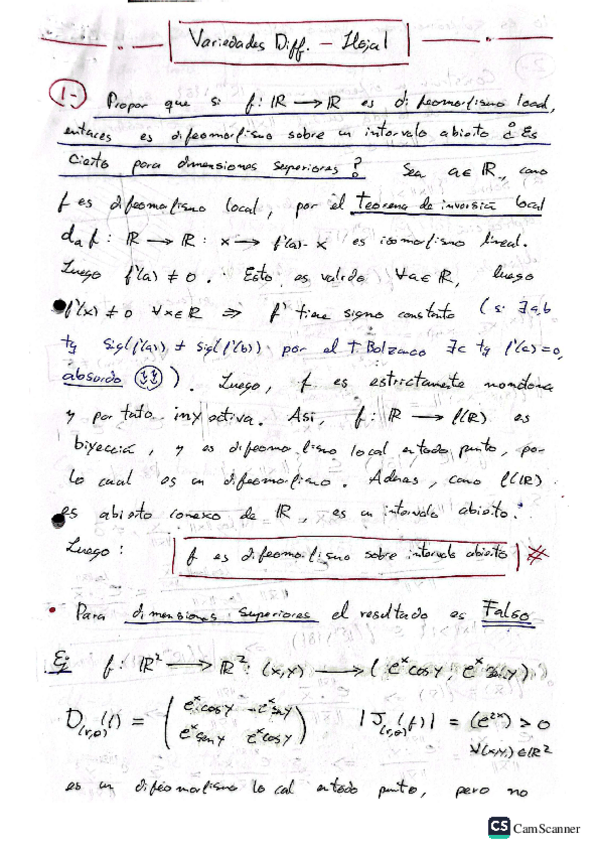 Variedades Diff. - Hoja 1
1- Probar que si f: ℝ → ℝ es difeomorfismo local,
entonces es difeomorfismo sobre un intervalo abierto ¿Es
cierto para dimensiones superiores? Sea a∈ℝ, como
f es difeomorfismo local, por el teorema de inversión local
d_a f: ℝ → ℝ: x → f'(a)·x es isomorfismo lineal.
Luego f'(a) ≠ 0. Esto es valido ∀a∈ℝ, luego
f'(x) ≠ 0 ∀x∈ℝ ⇒ f' tiene signo constante (si ∃a,b
tq Sig(f'(a)) ≠ Sig(f'(b)) por el T. Bolzano ∃c tq f'(c)=0,
absurdo). Luego, f es estrictamente monótona
y por tato inyectiva. Así, f: ℝ → f(ℝ) es
biyección, y es difeomorfismo local en todo punto, por
lo cual es un difeomorfismo. Ademas, como f(ℝ)
es abierto conexo de ℝ, es un intervalo abierto.
Luego: f es difeomorfismo sobre intervalo abierto
• Para dimensiones superiores el resultado es Falso
Ej f: ℝ² → ℝ²: (x,y) → (eˣ cos y, eˣ sen y)
D (f) = ( eˣ cos y -eˣ sen y |J (f)| = (e²ˣ) > 0
eˣ sen y eˣ cos y ) ∀(x,y)∈ℝ²
es un difeomorfismo local en todo punto, pero no
CS CamScanner